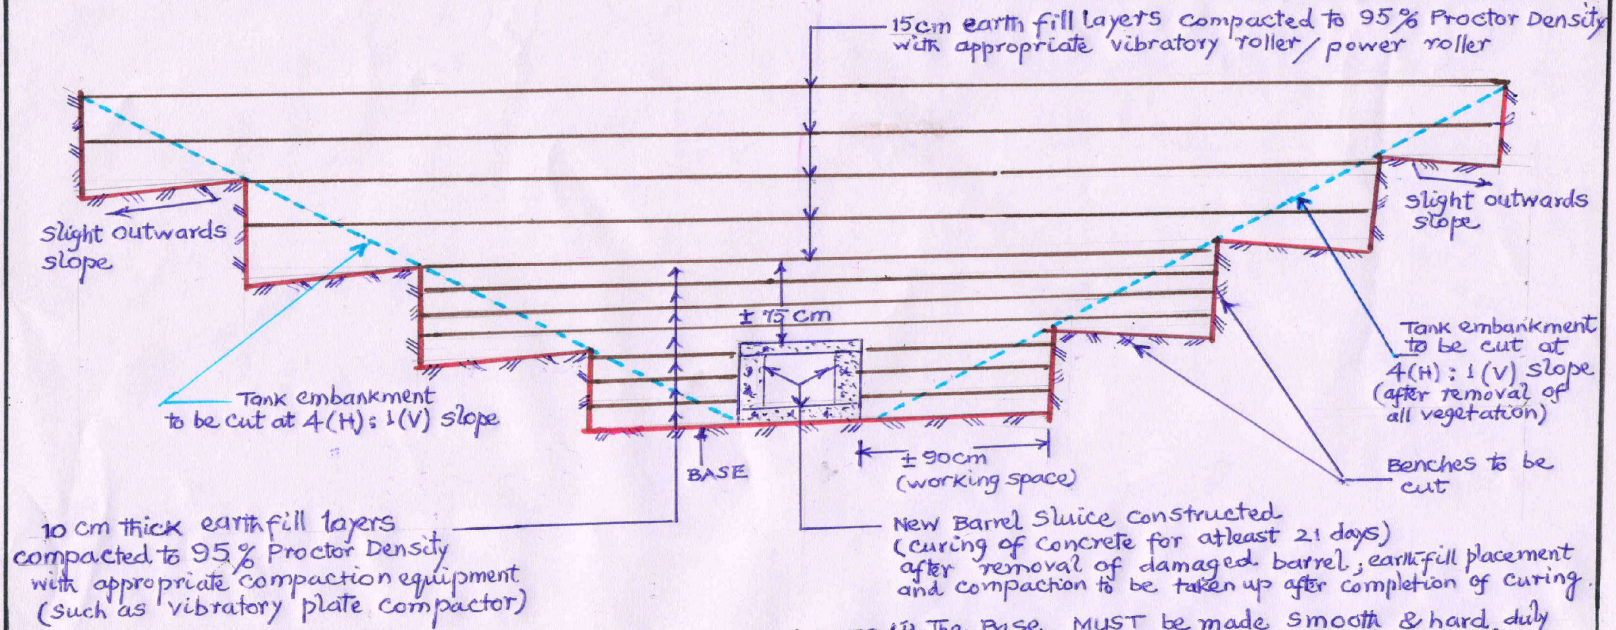 15cm earth fill layers compacted to 95% Proctor Density
with appropriate vibratory roller/power roller
slight outwards
slope
slight outwards
slope
± 75 cm
Tank embankment
to be cut at 4(H):1(V) slope
Tank embankment
to be cut at
4(H):1(V) slope
(after removal of
all vegetation)
BASE
± 90cm
(working space)
Benches to be
cut
10 cm thick earthfill layers
compacted to 95% Proctor Density
with appropriate compaction equipment
(such as vibratory plate compactor)
New Barrel Sluice constructed
(curing of concrete for atleast 21 days)
after removal of damaged barrel; earth-fill placement
and compaction to be taken up after completion of curing.
The Base MUST be made smooth & hard, duly